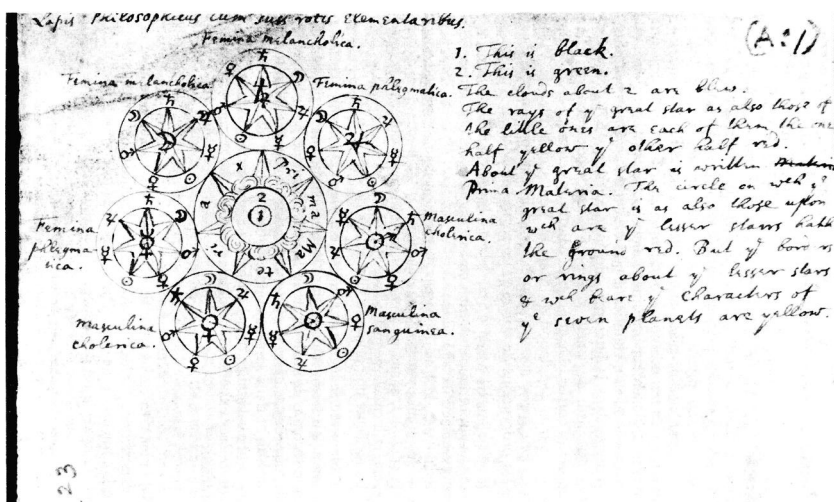 Lapis Philosophicus cum suis rotis Elementaribus.
Femina melancholica.
Femina melancholica
Femina phlegmatica.
Femina
phlegma-
tica.
Masculina
cholerica.
Masculina
cholerica.
Masculina
sanguinea.
Pri
ma
Ma
te
ri
a
x
2
1
(A:1)
1. This is black.
2. This is green.
The clouds about 2 are blew.
The rays of yᵉ great star as also those of
the little ones are each of them the one
half yellow yᵉ other half red.
About yᵉ great star is written
Prima Materia. The circle on wch yᵉ
great star is as also those upon
wch are yᵉ lesser starrs hath
the ground red. But yᵉ borders
or rings about yᵉ lesser stars
& wch beare yᵉ characters of
yᵉ seven planets are yellow.
23